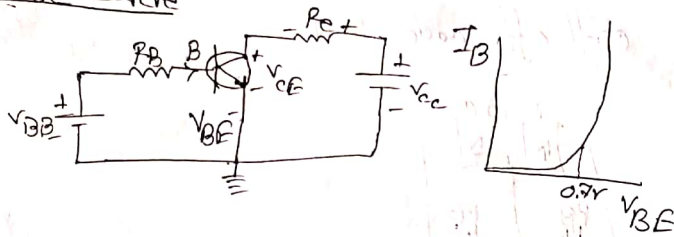 - Rc +
RB B
+
VCE
-
+
VBB
-
-
VBE
+
Vcc
-
IB
0.7V
VBE